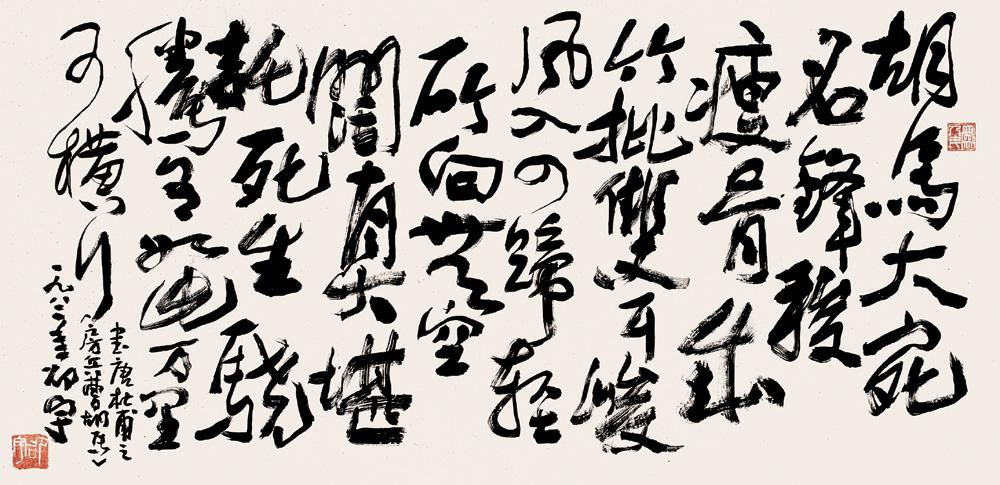 胡馬大宛
名鋒稜
瘦骨成
竹批雙耳峻
風入四蹄輕
所向無空
闊真堪
託死生驍
騰有如此万里
可橫行
書唐杜甫之
《房兵曹胡馬》
一九八二年邵宇